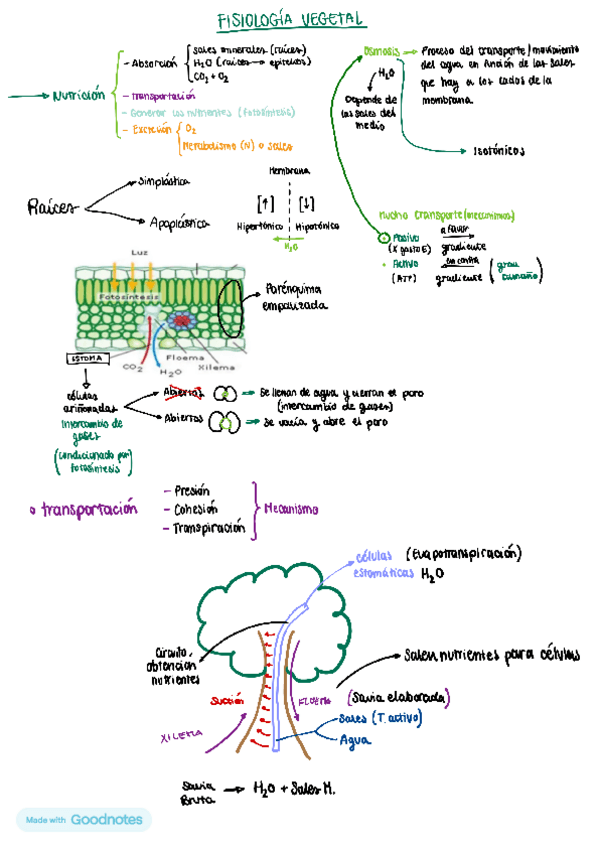 FISIOLOGÍA VEGETAL
Nutrición
- Absorción
sales minerales (raíces)
H₂O (raíces → epitelios)
CO₂ + O₂
- transportación
- Generar los nutrientes (fotosíntesis)
- Excreción
O₂
Metabolismo (N) o sales
osmosis → Proceso del transporte/movimiento
del agua en función de las sales
que hay a los lados de la
membrana.
H₂O
Depende de
las sales del
medio
Isotónicos
Raíces
Simplástica
Apoplástica
Membrana
[↑] [↓]
Hipertónico Hipotónico
H₂O
mucho transporte (mecanismos)
Pasivo
(X gasto E)
a favor
gradiente
Activo
(ATP)
en contra
gradiente
(gran
tamaño)
Luz
Fotosíntesis
Parénquima
empalizada
ESTOMA
CO₂
H₂O
Floema
Xilema
células
arriñonadas
Intercambio de
gases
(condicionado por
fotosíntesis)
Abiertos → Se llenan de agua y cierran el poro
(intercambio de gases)
Abiertos → se vacía y abre el poro
transportación
- Presión
- Cohesión
- Transpiración
Mecanismo
células (Evapotranspiración)
estomáticas H₂O
Circuito,
obtención
nutrientes
Salen nutrientes para células
Succión
FLOEMA (Savia elaborada)
XILEMA
Sales (T. activo)
Agua
Savia
Bruta → H₂O + Sales M.
Made with Goodnotes